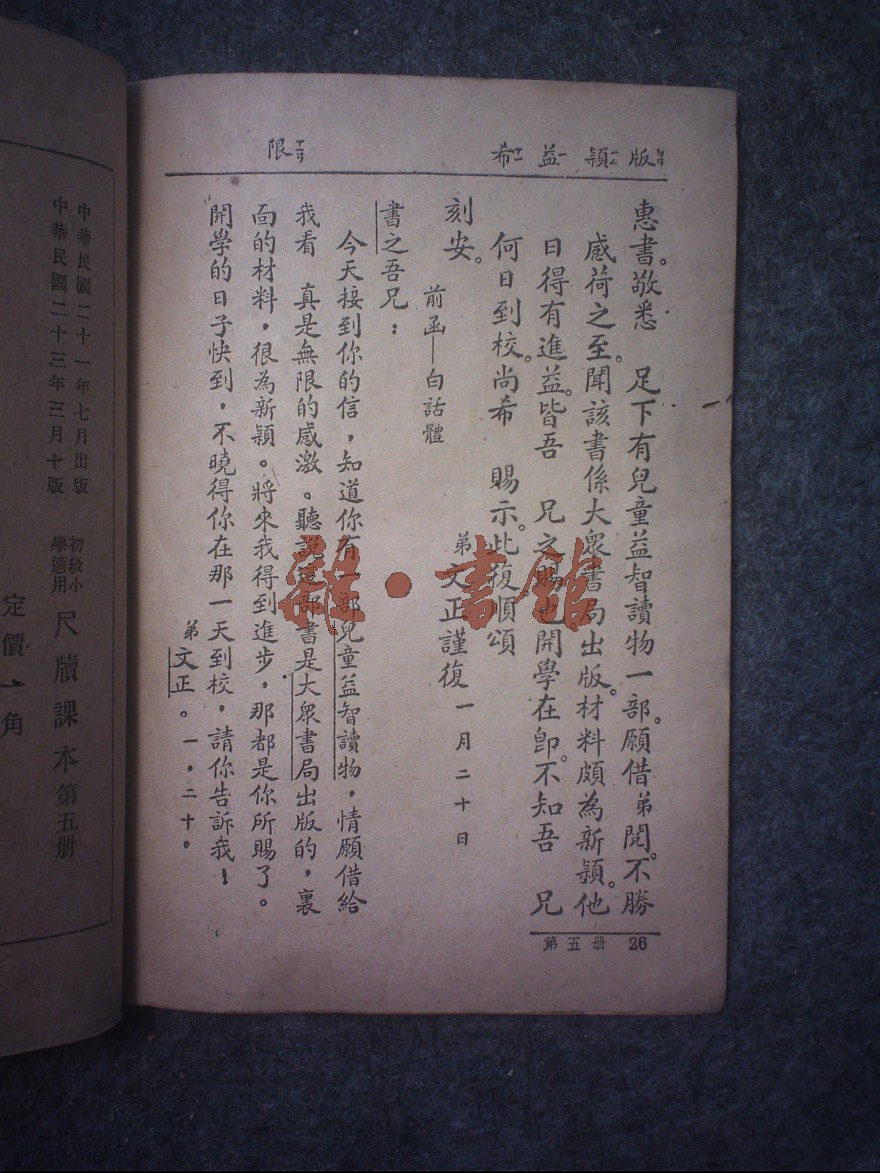 版 穎 益 希 限
惠書。敬悉 足下有兒童益智讀物一部。願借弟閱。不勝
感荷之至。聞該書係大眾書局出版。材料頗為新穎。他
日得有進益。皆吾 兄之賜也開學在卽。不知吾 兄
何日到校。尚希 賜示。此復順頌
刻安。
弟文正謹復 一月二十日
前函—白話體
書之吾兄：
今天接到你的信，知道你有一部兒童益智讀物，情願借給
我看 真是無限的感激。聽說這部書是大眾書局出版的，裏
面的材料，很為新穎。將來我得到進步，那都是你所賜了。
開學的日子快到，不曉得你在那一天到校，請你告訴我！
弟文正。一，二十。
第五册 26
中華民國二十一年七月出版
中華民國二十三年三月十版
初級小學適用 尺牘課本 第五册
定價一角
雜·書館